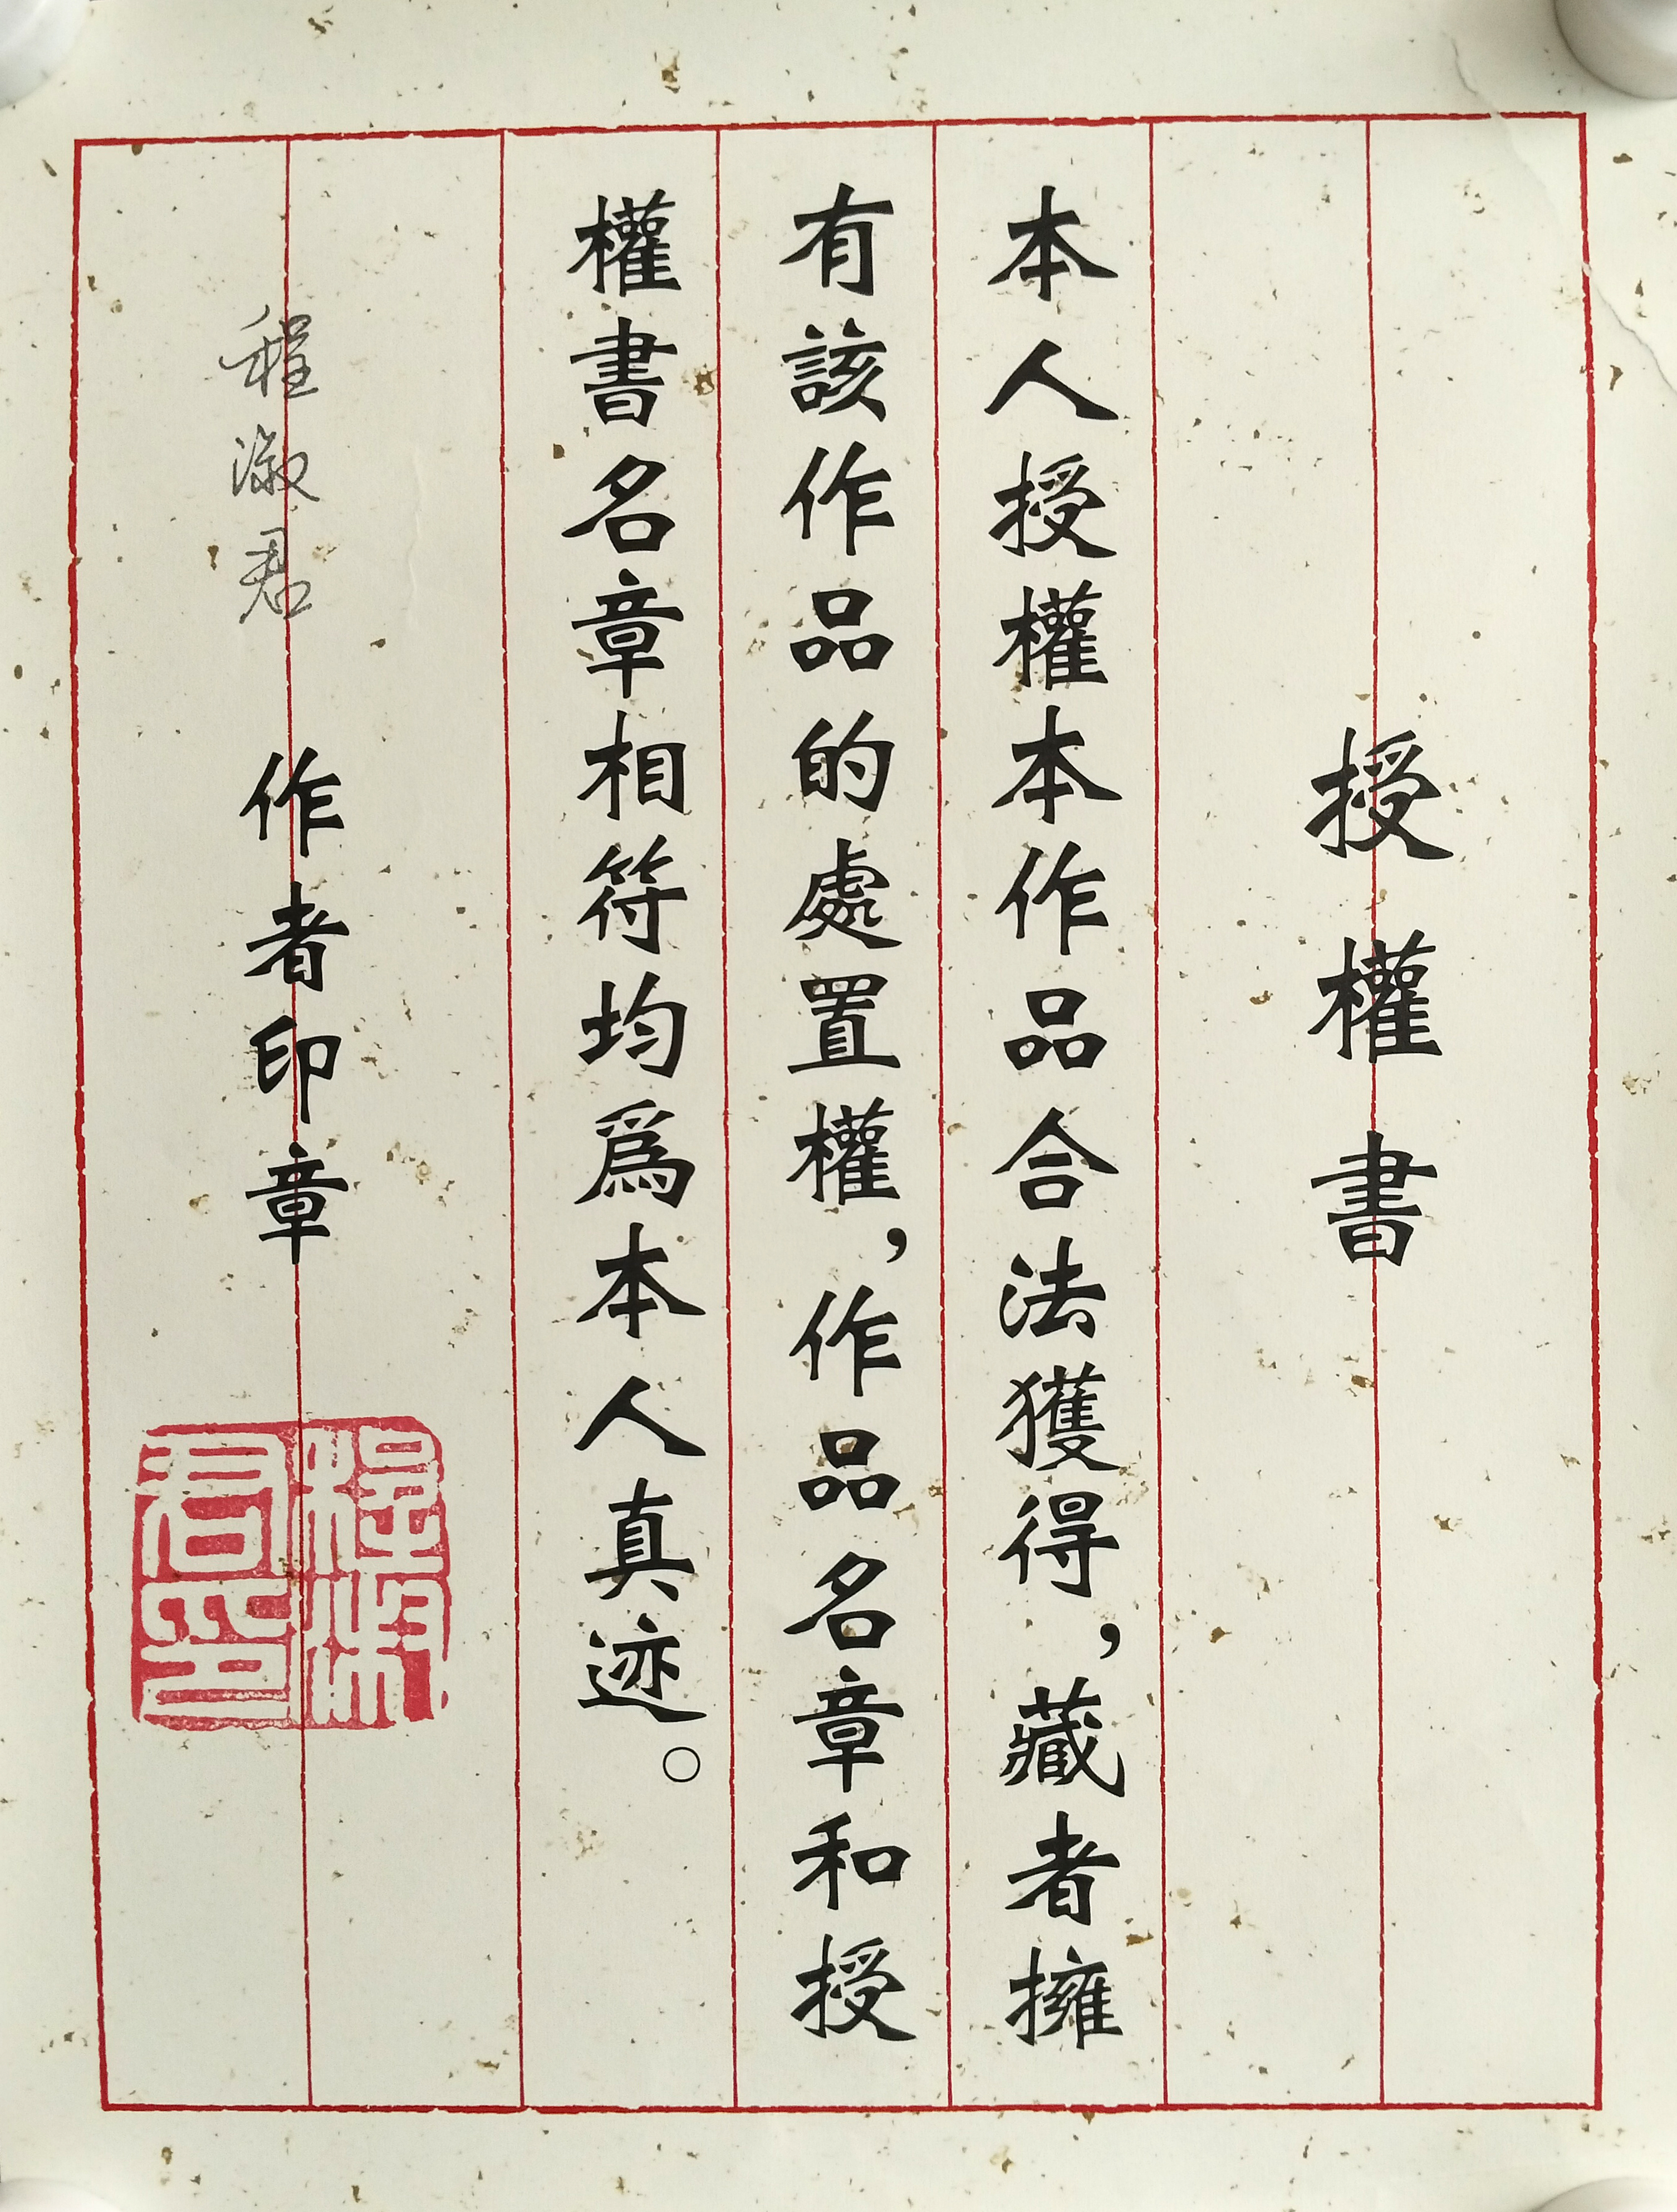 授權書
本人授權本作品合法獲得，藏者擁
有該作品的處置權，作品名章和授
權書名章相符均爲本人真迹。
程淑君
作者印章
程淑君印